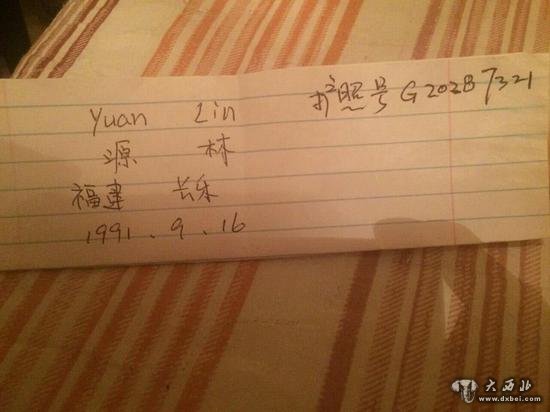 Yuan Lin
源 林
福建 长乐
1991.9.16
护照号 G20287321
大西北
www.dxbei.com